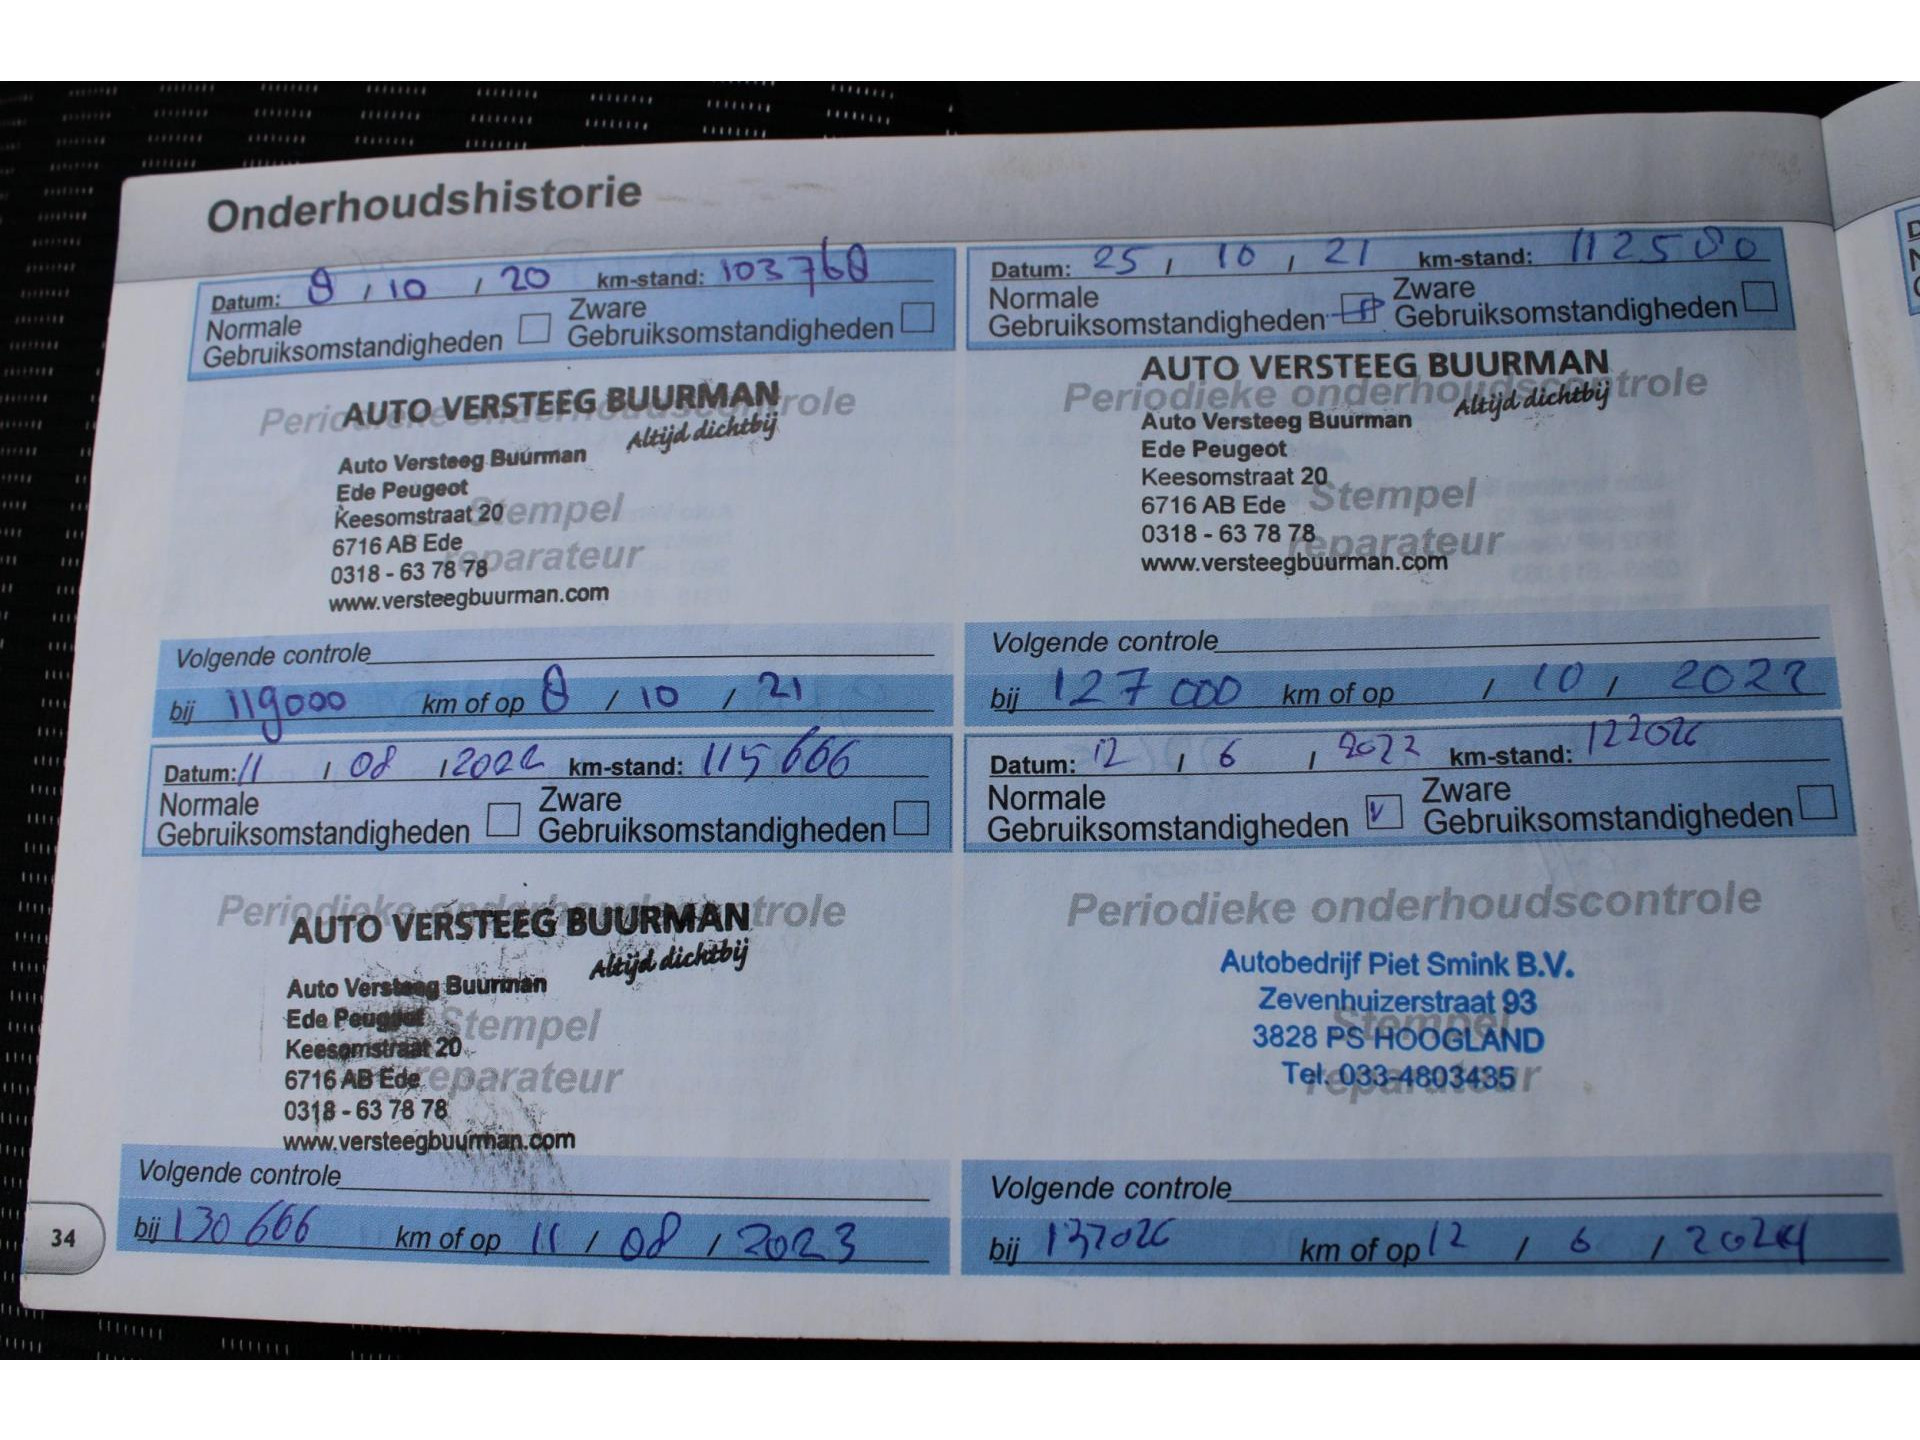 Onderhoudshistorie
Datum: 8 / 10 / 20 km-stand: 103768
Normale Gebruiksomstandigheden Zware Gebruiksomstandigheden
Periodieke onderhoudscontrole
AUTO VERSTEEG BUURMAN
Altijd dichtbij
Auto Versteeg Buurman
Ede Peugeot
Keesomstraat 20
Stempel
6716 AB Ede
reparateur
0318 - 63 78 78
www.versteegbuurman.com
Volgende controle
bij 119000 km of op 8 / 10 / 21
Datum: 25 / 10 / 21 km-stand: 112580
Normale Gebruiksomstandigheden Zware Gebruiksomstandigheden
AUTO VERSTEEG BUURMAN
Periodieke onderhoudscontrole
Altijd dichtbij
Auto Versteeg Buurman
Ede Peugeot
Keesomstraat 20
Stempel
6716 AB Ede
0318 - 63 78 78
reparateur
www.versteegbuurman.com
Volgende controle
bij 127000 km of op / 10 / 2022
Datum: 11 / 08 / 2022 km-stand: 115666
Normale Gebruiksomstandigheden Zware Gebruiksomstandigheden
Periodieke onderhoudscontrole
AUTO VERSTEEG BUURMAN
Altijd dichtbij
Auto Versteeg Buurman
Ede Peugeot
Stempel
Keesomstraat 20
6716 AB Ede
reparateur
0318 - 63 78 78
www.versteegbuurman.com
Volgende controle
bij 130666 km of op 11 / 08 / 2023
Datum: 12 / 6 / km-stand: 122026
Normale Gebruiksomstandigheden V Zware Gebruiksomstandigheden
Periodieke onderhoudscontrole
Autobedrijf Piet Smink B.V.
Zevenhuizerstraat 93
Stempel
3828 PS HOOGLAND
Tel. 033-4803435
reparateur
Volgende controle
bij 137026 km of op 12 / 6 / 2024
34